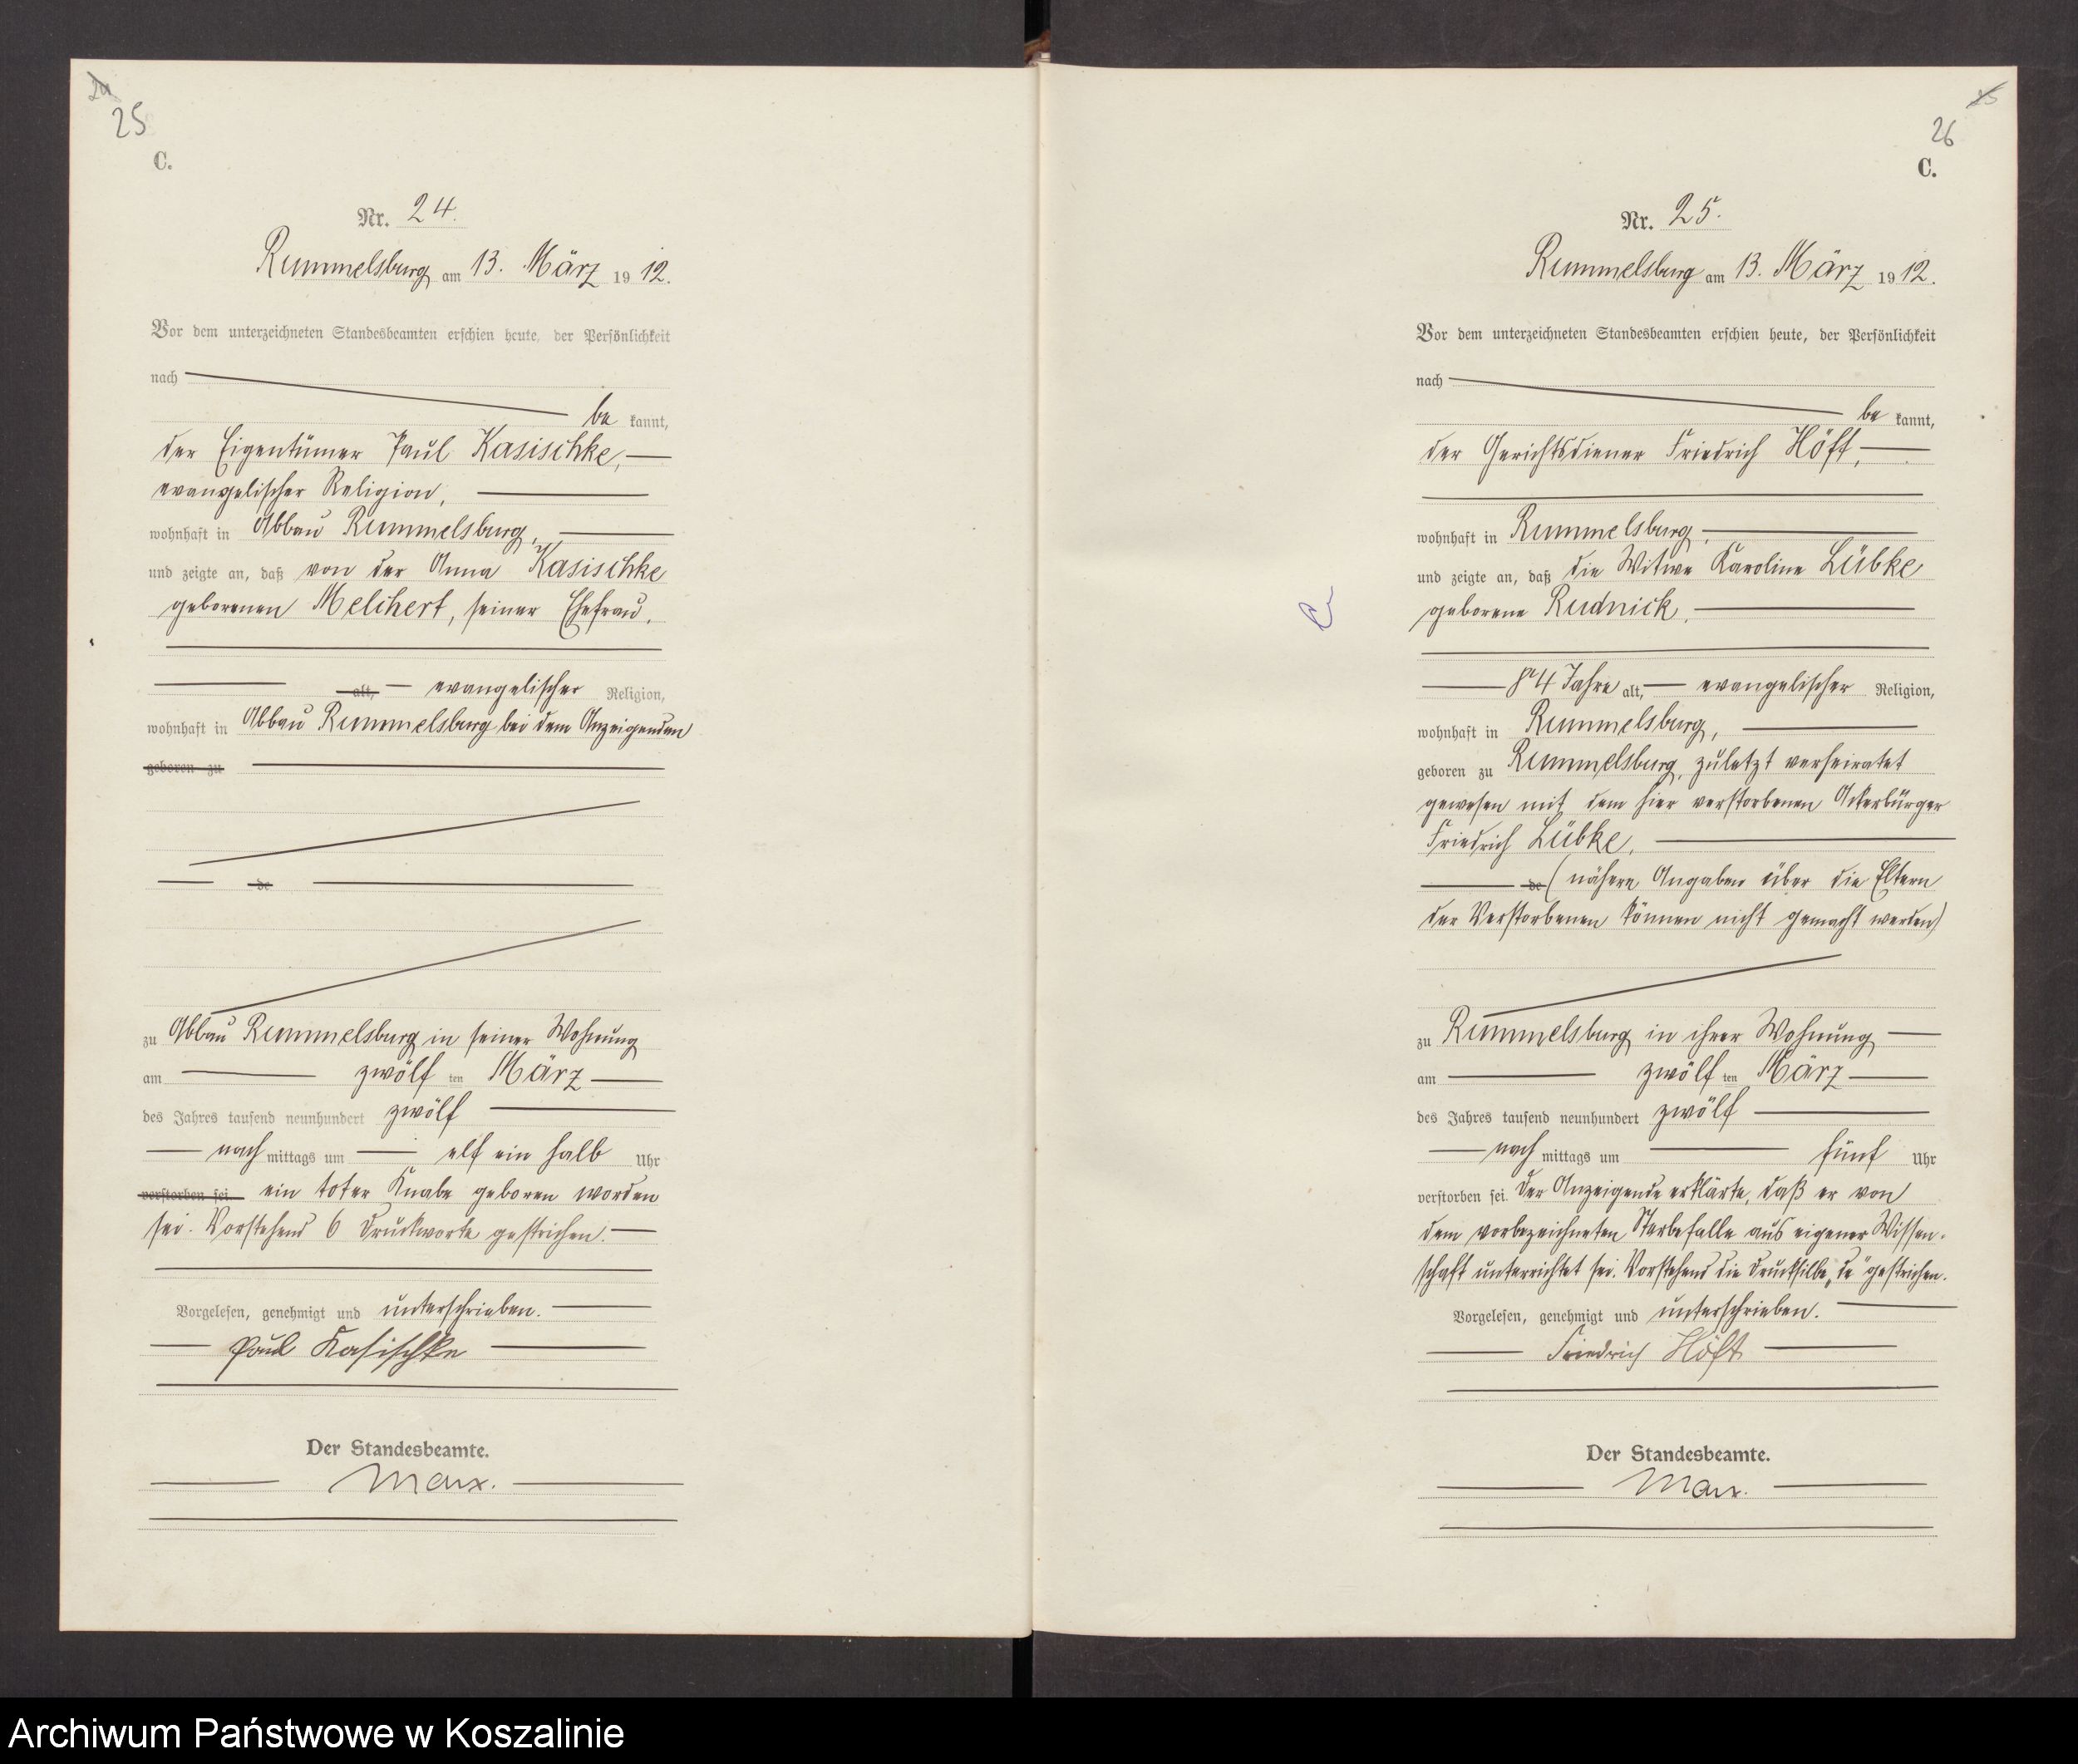 24
25
C.
Nr. 24.
Rummelsburg am 13. März 1912.
Vor dem unterzeichneten Standesbeamten erschien heute, der Persönlichkeit
nach
be kannt,
der Eigentümer Paul Kasischke,
evangelischer Religion,
wohnhaft in Abbau Rummelsburg,
und zeigte an, daß von der Anna Kasischke
geborenen Melchert, seiner Ehefrau,
alt, evangelischer Religion,
wohnhaft in Abbau Rummelsburg bei dem Anzeigenden
geboren zu
de
zu Abbau Rummelsburg in seiner Wohnung
am zwölf ten März
des Jahres tausend neunhundert zwölf
nach mittags um elf ein halb Uhr
verstorben sei. ein toter Knabe geboren worden
sei. Vorstehend 6 Druckworte gestrichen.
Vorgelesen, genehmigt und unterschrieben.
Paul Kasischke
Der Standesbeamte.
Marx.
25
26
C.
Nr. 25.
Rummelsburg am 13. März 1912.
Vor dem unterzeichneten Standesbeamten erschien heute, der Persönlichkeit
nach
be kannt,
der Gerichtsdiener Friedrich Höft,
wohnhaft in Rummelsburg,
und zeigte an, daß die Witwe Karoline Lübke
geborene Rudnick,
84 Jahre alt, evangelischer Religion,
wohnhaft in Rummelsburg,
geboren zu Rummelsburg, zuletzt verheiratet
gewesen mit dem hier verstorbenen Ackerbürger
Friedrich Lübke,
de (nähere Angaben über die Eltern
der Verstorbenen können nicht gemacht werden)
zu Rummelsburg in ihrer Wohnung
am zwölf ten März
des Jahres tausend neunhundert zwölf
nach mittags um fünf Uhr
verstorben sei. Der Anzeigende erklärte, daß er von
dem vorbezeichneten Sterbefalle aus eigener Wissen-
schaft unterrichtet sei. Vorstehend die Drucksilbe „de" gestrichen.
Vorgelesen, genehmigt und unterschrieben.
Friedrich Höft
Der Standesbeamte.
Marx.
Archiwum Państwowe w Koszalinie